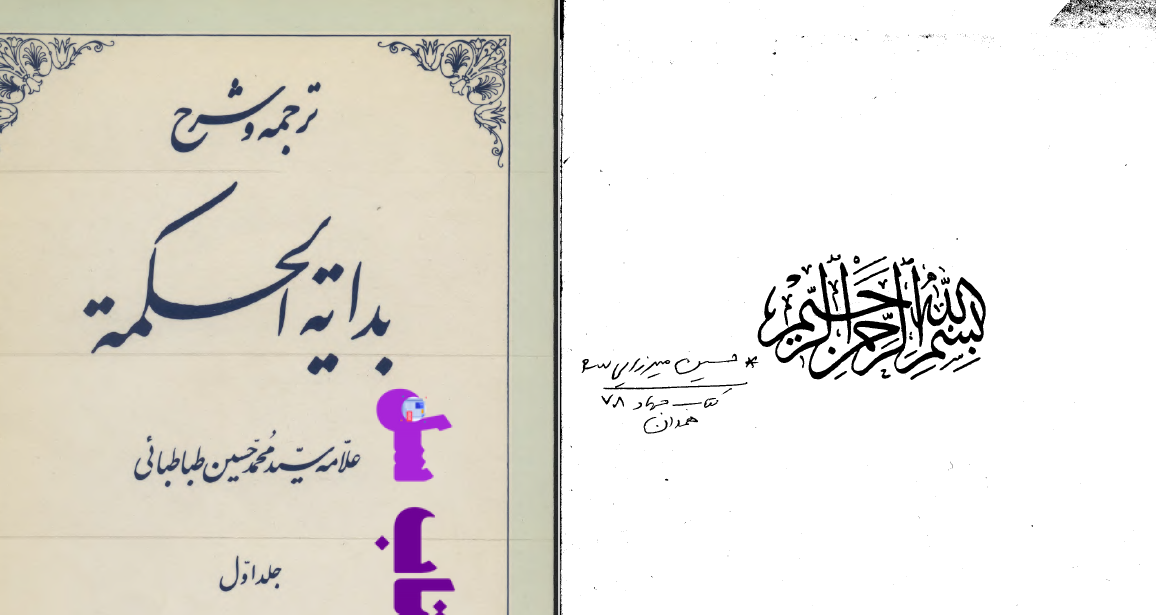 ترجمه و شرح
بدایة الحکمة
علامه سیّد محمّد حسین طباطبائی
جلد اوّل
بسم الله الرحمن الرحیم
* حسین میرزایی
کتاب جهاد ۷۸
همدان